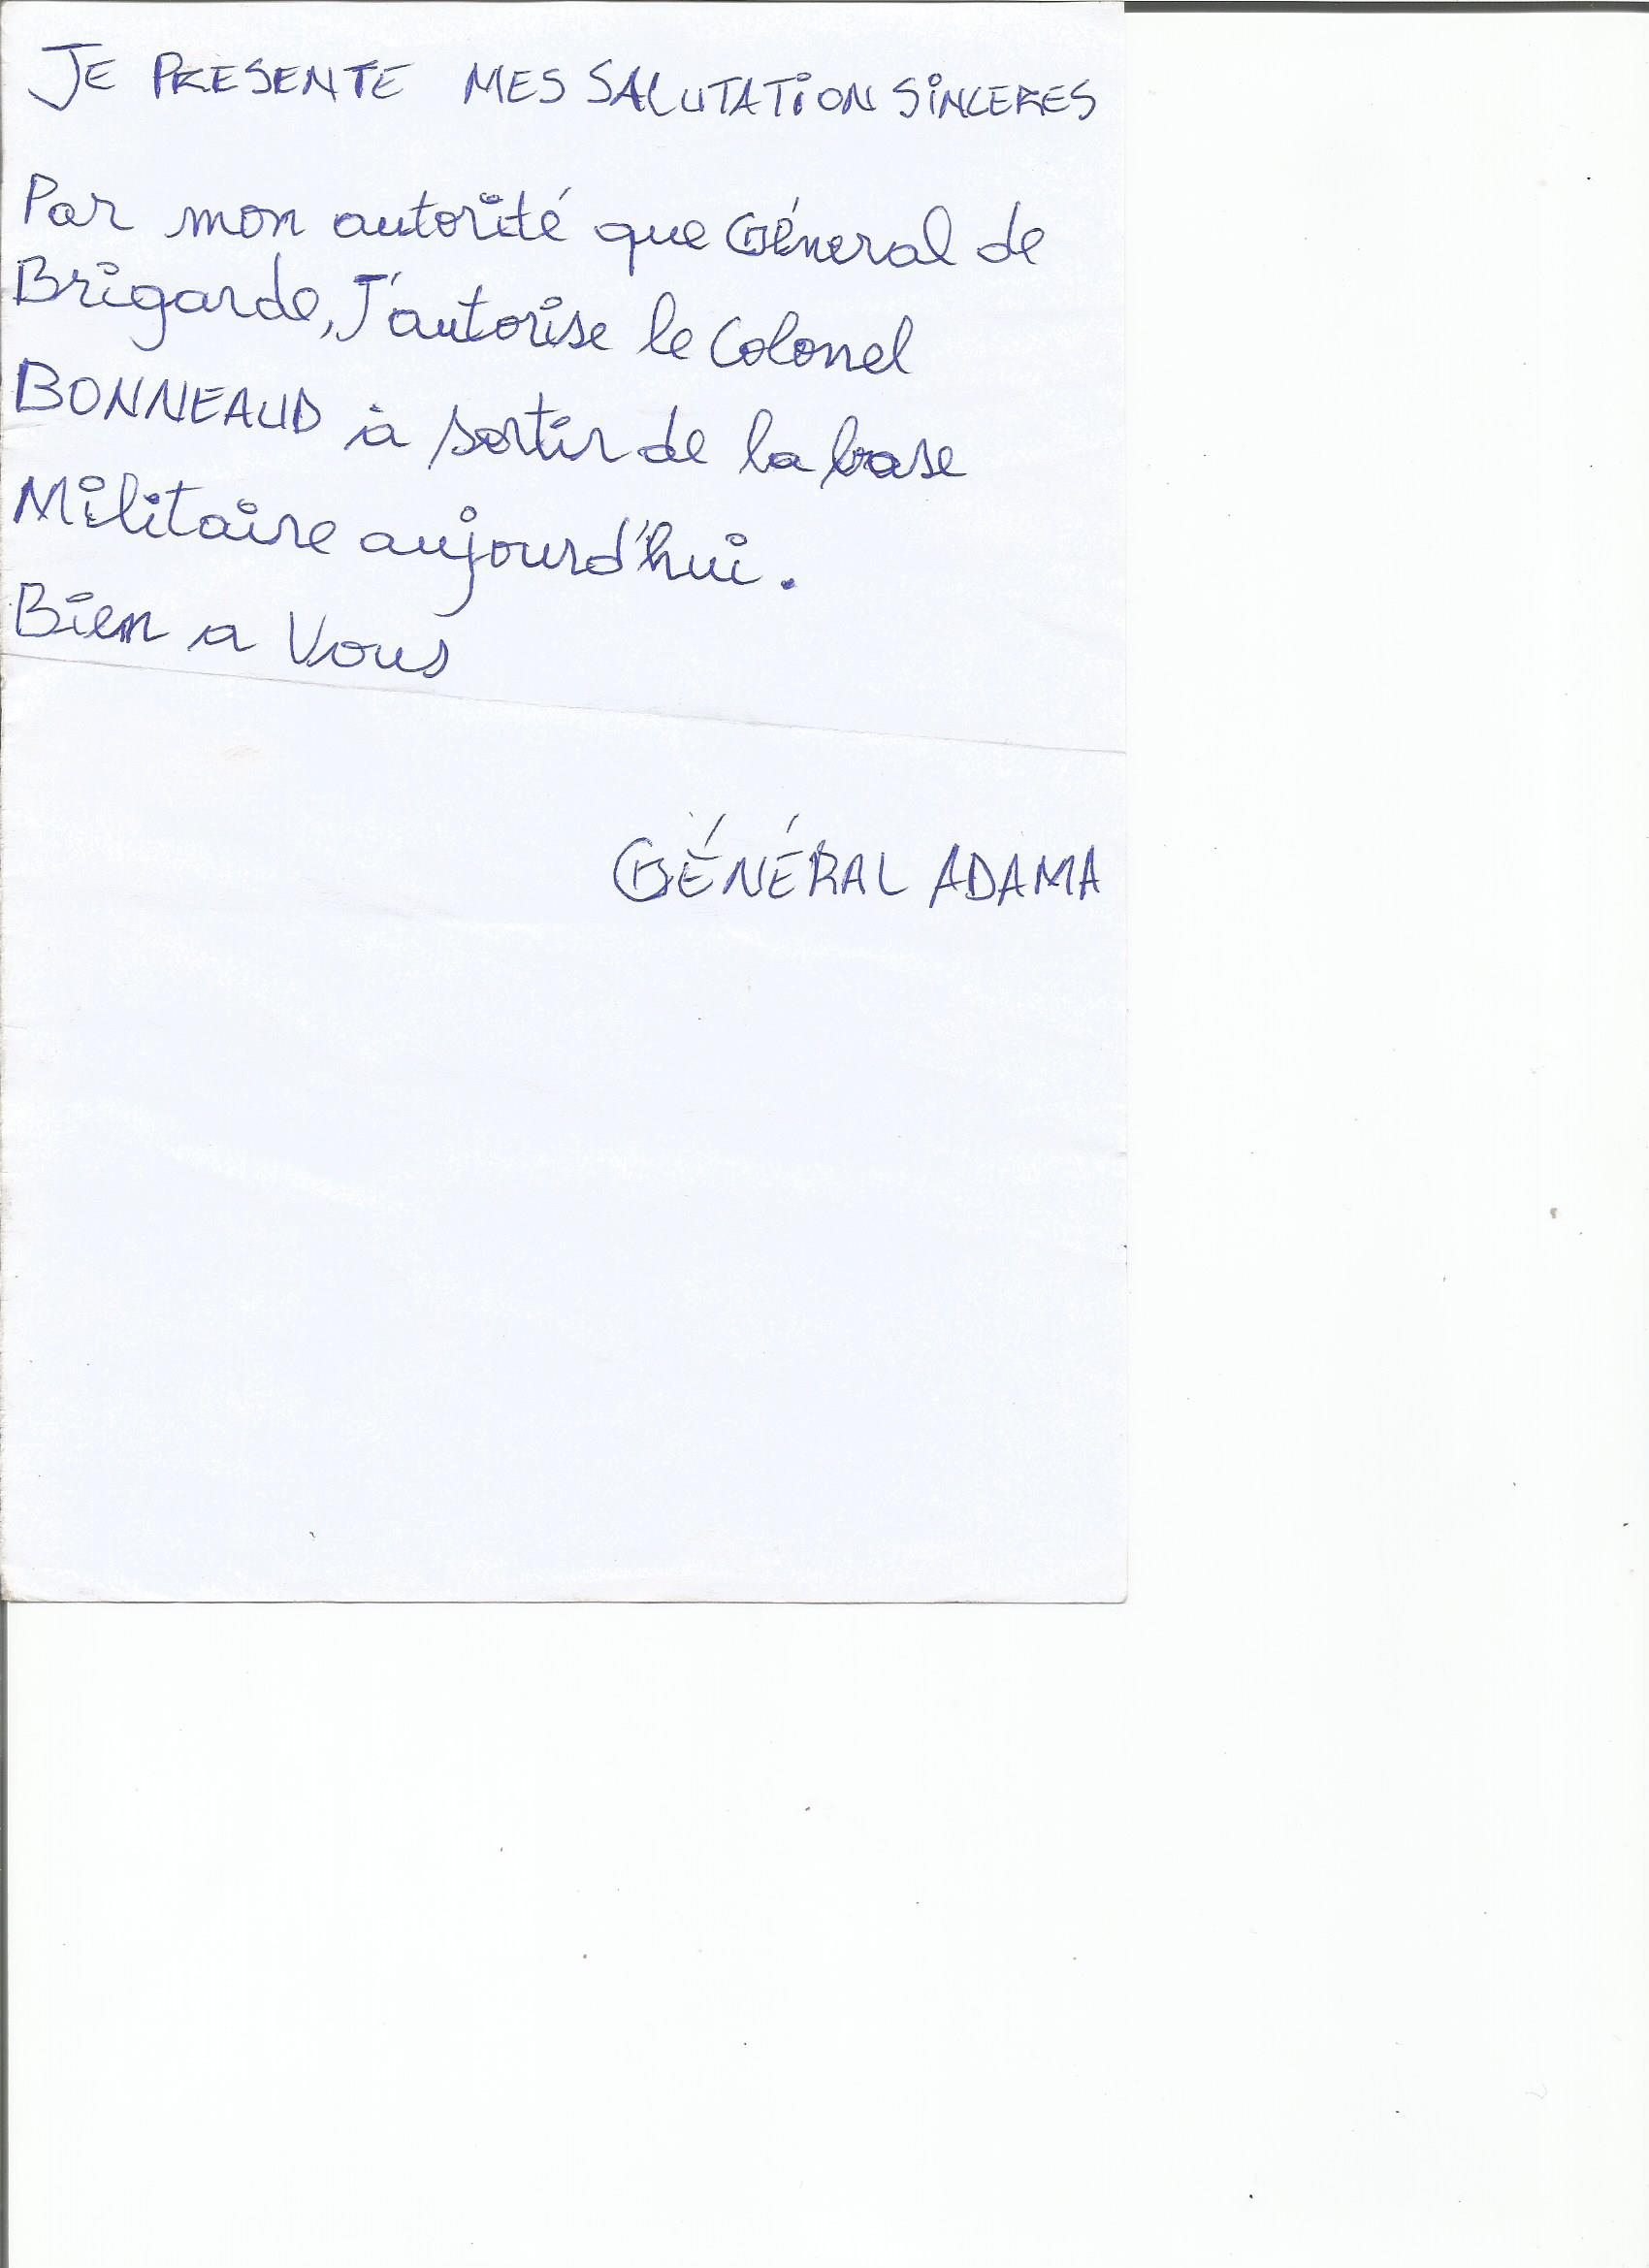 JE PRESENTE MES SALUTATION SINCERES
Par mon autorité que Géneral de
Brigarde, J'autorise le Colonel
BONNEAUD à sortir de la base
Militaire aujourd'hui.
Bien a Vous
GÉNÉRAL ADAMA